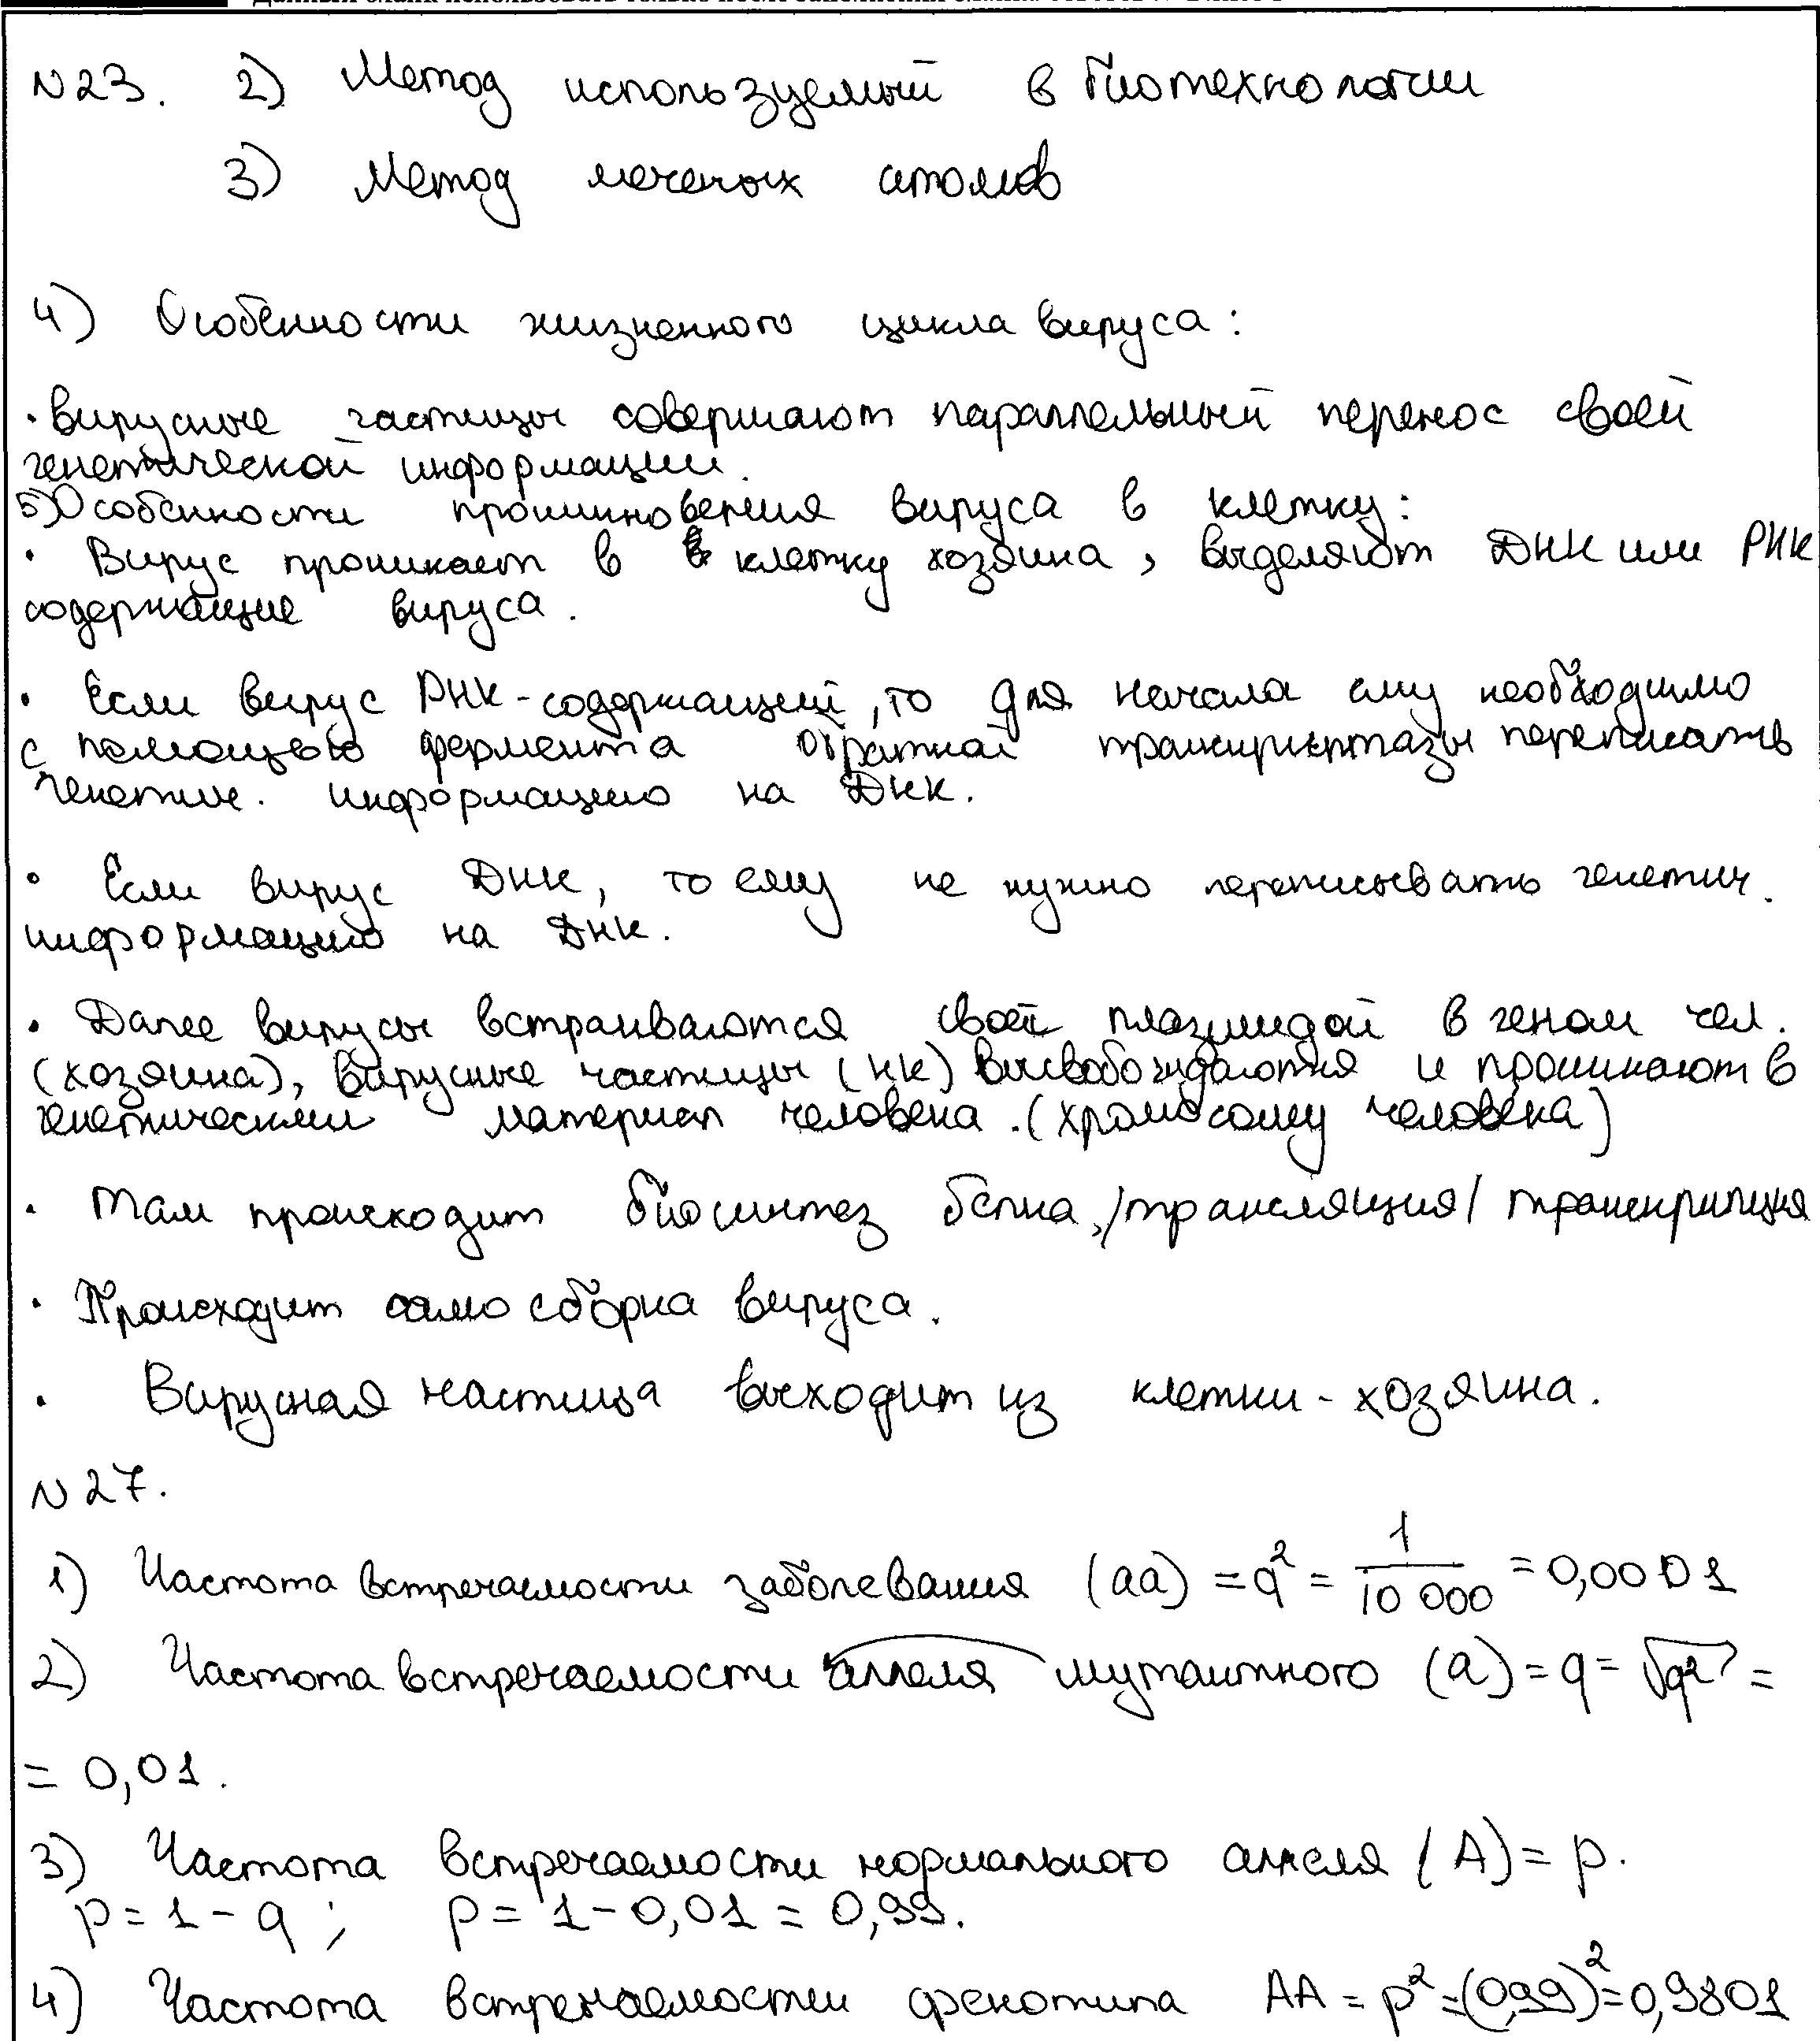 N 23. 2) Метод используемый в биотехнологии
3) Метод меченых атомов
4) Особенности жизненного цикла вируса:
· Вирусные частицы совершают параллельный перенос своей
генетической информации.
5) Особенности проникновения вируса в клетку:
· Вирус проникает в клетку хозяина, выделяют ДНК или РНК
содержащие вируса.
· Если вирус РНК-содержащий, то для начала ему необходимо
с помощью фермента обратной транскриптазы переписать
генетич. информацию на ДНК.
· Если вирус ДНК, то ему не нужно переписывать генетич.
информацию на ДНК.
· Далее вирусы встраиваются своей плазмидой в геном чел.
(хозяина), вирусные частицы (НК) высвобождаются и проникают в
генетический материал человека. (хромосому человека)
· Там происходит биосинтез белка, /трансляция/ транскрипция
· Происходит самосборка вируса.
· Вирусная частица выходит из клетки-хозяина.
N 27.
1) Частота встречаемости заболевания (aa) = q² = 1/10 000 = 0,0001
2) Частота встречаемости аллеля мутантного (a) = q = √q² =
= 0,01.
3) Частота встречаемости нормального аллеля (A) = p.
p = 1 - q; p = 1 - 0,01 = 0,99.
4) Частота встречаемости фенотипа AA = p² = (0,99)² = 0,9801